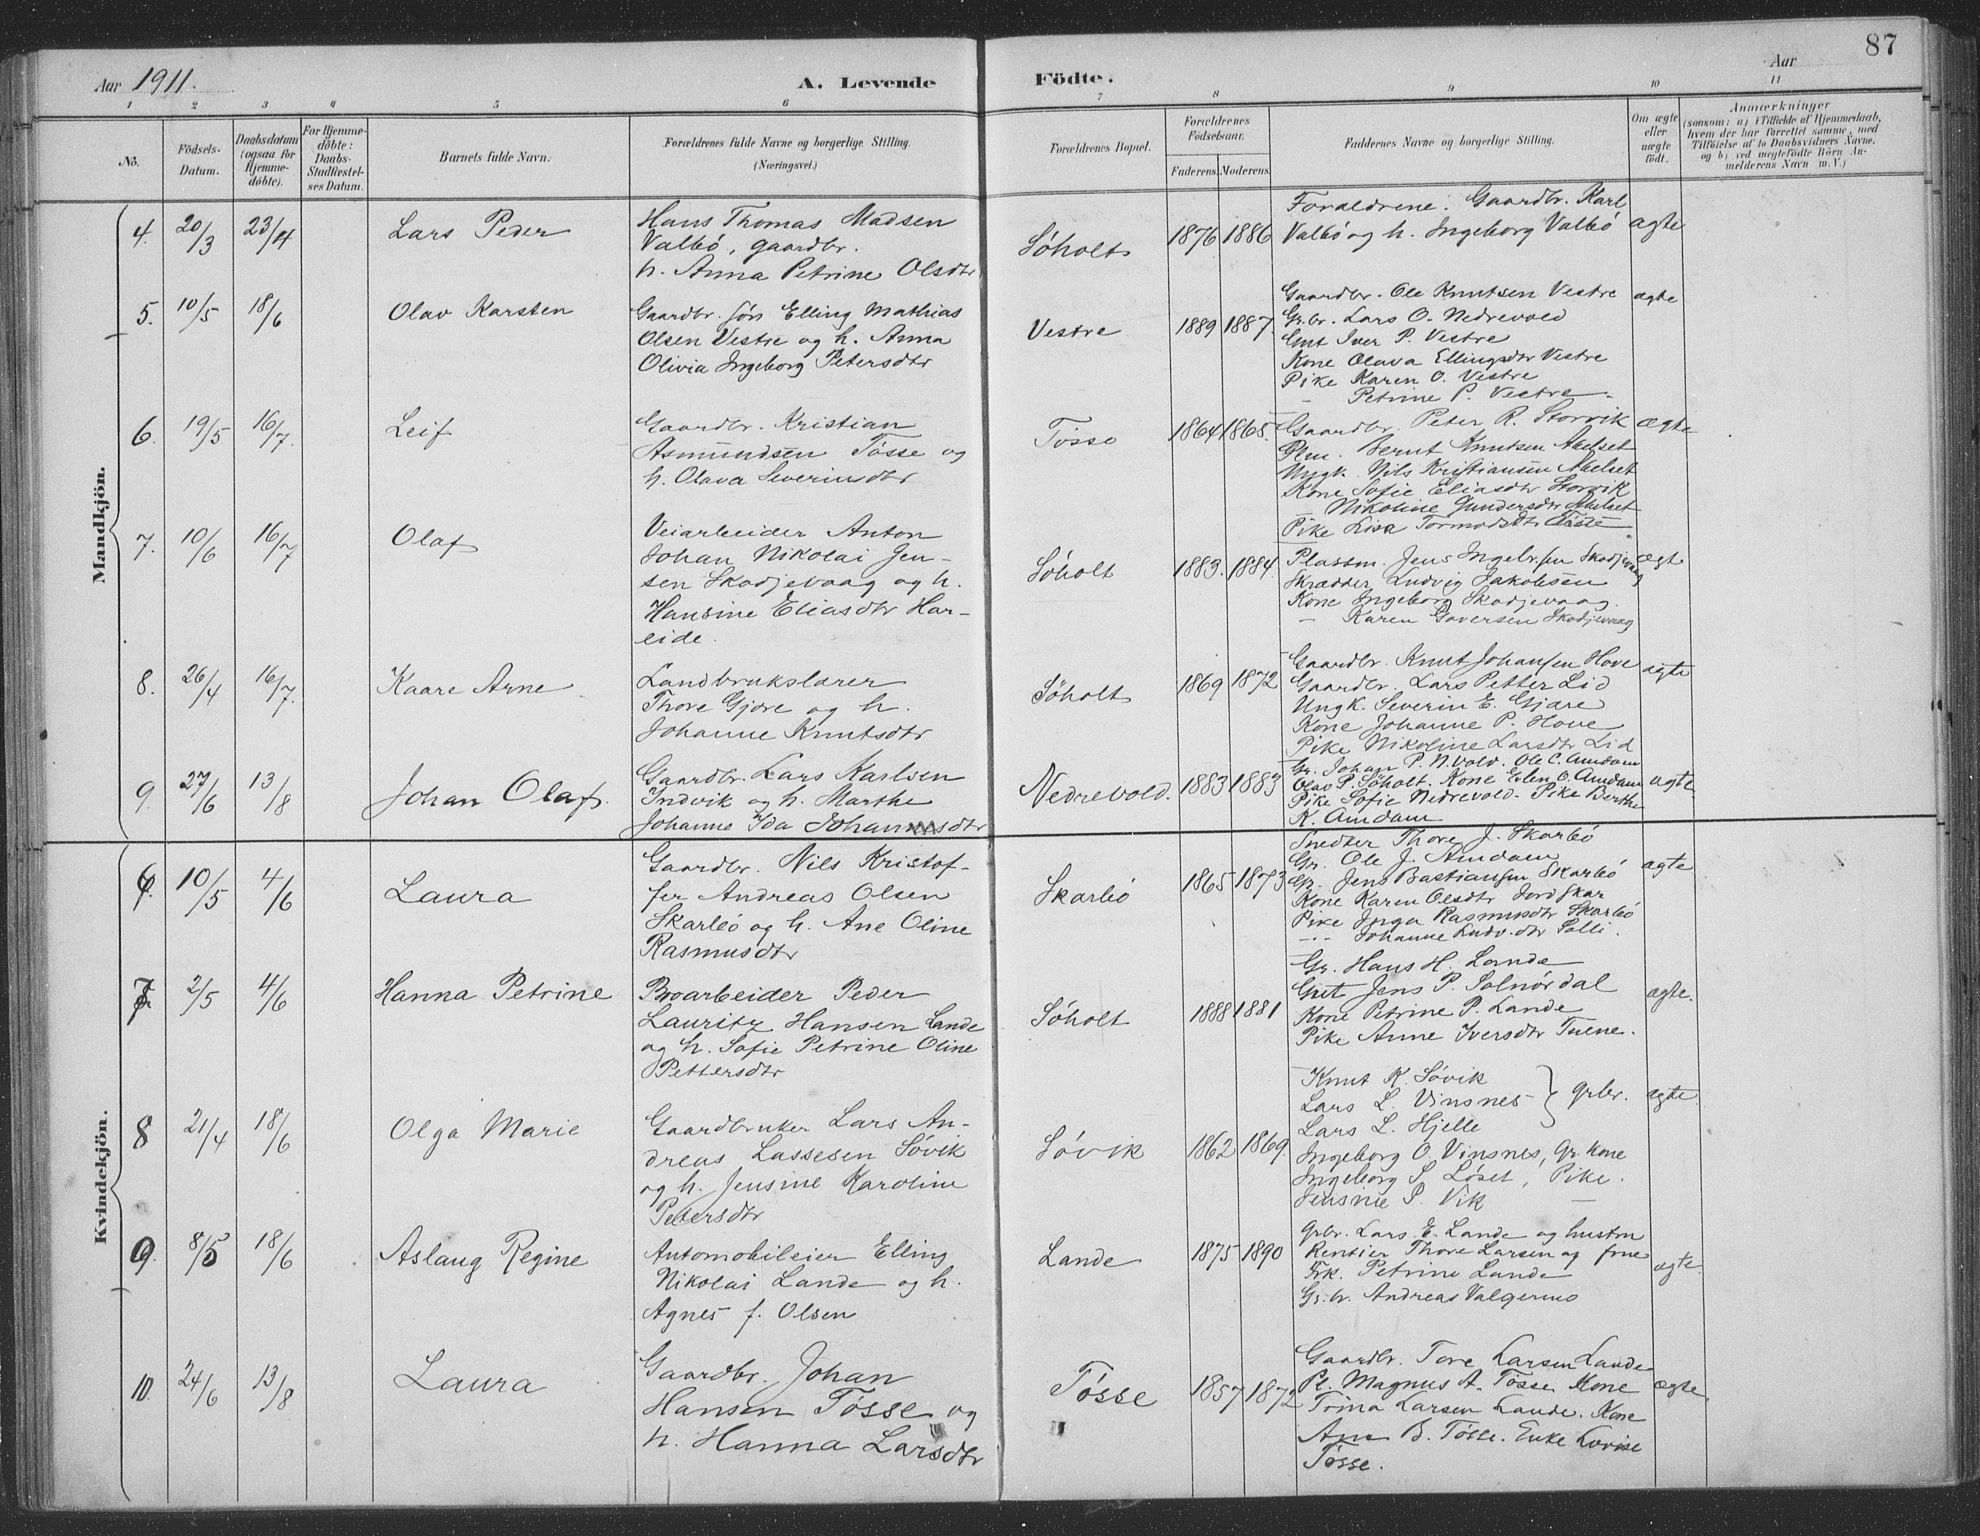 87
Aar 1911.
A. Levende Födte.
Aar
1 2 3 4 5 6 7 8 9 10 11
No.
Födsels-
Datum.
Daabsdatum
(ogsaa for
Hjemme-
döbte).
For Hjemme-
döbte:
Daabs-
Stadfæstel-
ses Datum.
Barnets fulde Navn.
Forældrenes fulde Navne og borgerlige Stilling.
(Næringsvei.)
Forældrenes Bopæl.
Forældrenes
Födselsaar.
Faderens. Moderens.
Faddernes Navne og borgerlige Stilling.
Om ægte
eller
uægte
födt.
Anmærkninger
(saasom: a) i Tilfælde af Hjemmedaab,
hvem der har forrettet samme, med
Tilföielse af to Daabsvidners Navne,
og b) ved uægtefödte Börn An-
melderens Navn m. V.)
Mandkjön.
4. 20/3 23/4 Lars Peder
Hans Thomas Madsen
Valbö, gaardbr.
h. Anna Petrine Olsdtr
Söholt 1876 1886
Forældrene. Gaardbr. Karl
Valbö og h. Ingeborg Valbö
ægte
5. 10/5 18/6 Olav Karsten
Gaardbr. sön Elling Mathias
Olsen Vestre og h. Anna
Olivia Ingeborg Petersdtr
Vestre 1889 1887
Gaardbr. Ole Knutsen Vestre
Gr.br. Lars O. Nedrevold
Gut Iver P. Vestre
Kone Olava Ellingsdtr Vestre
Pike Karen O. Vestre
— Petrine P. Vestre.
ægte
6. 19/5 16/7. Leif
Gaardbr. Kristian
Asmundsen Tösse og
h. Olava Severinsdtr
Tösse 1864 1865.
Gaardbr. Peter R. Storvik
Plm. Bernt Knutsen Akelset
Ungk. Nils Kristiansen Akelset
Kone Sofie Eliasdtr Storvik
— Nikoline Gundersdtr Akelset
Pike Liva Tormodsdtr Tösse
ægte
7. 10/6 16/7 Olaf
Veiarbeider Anton
Johan Nikolai Jen-
sen Skodjevaag og h.
Hansine Eliasdtr Har-
eide.
Söholt 1883. 1884.
Plassm. Jens Ingebr.sen Skodjevaag
Skrædder Ludvig Jakobsen
Kone Ingeborg Skodjevaag.
— Karen Goversen Skodjevaag
ægte
8. 26/4 16/7. Kaare Arne
Landbrukslærer
Thore Gjöre og h.
Johanne Knutsdtr
Söholt 1869 1872
Gaardbr. Knut Johansen Hove
Gaardbr. Lars Petter Lid
Ungk. Severin E. Gjöre
Kone Johanne P. Hove
Pike Nikoline Larsdtr Lid
ægte
9. 27/6 13/8 Johan Olaf.
Gaardbr. Lars Karlsen
Indvik og h. Marthe
Johanne Ida Johannsdtr
Nedrevold. 1883 1883
Gr. Johan P. N.vold. Ole C. Amdam
Olav P. Söholt. Kone Elen O. Amdam
Pike Sofie Nedrevold. Pike Berthe
K. Amdam
ægte.
Kvindekjön.
6. 10/5 4/6 Laura
Gaardbr. Nils Kristof-
fer Andreas Olsen
Skarbö og h. Ane Oline
Rasmusdtr
Skarbö 1865 1873
Snedker Thore J. Skarbö
Gr. Ole J. Amdam
Gr. Jens Bastiansen Skarbö
Kone Karen Olsdtr Jordskar
Pike Inga Rasmusdtr Skarbö
— Johanne Ludv.dtr Solli.
ægte
7 2/5 4/6 Hanna Petrine
Broarbeider Peder
Lauritz Hansen Lande
og h. Sofie Petrine Oline
Pettersdtr
Söholt 1888 1881
Gr. Hans H. Lande
Gut Jens P. Solnördal
Kone Petrine P. Lande
Pike Anne Iversdtr Tuene.
ægte.
8 21/4 18/6 Olga Marie
Gaardbruker Lars An-
dreas Lassesen Sövik
og h. Jensine Karoline
Petersdtr
Sövik 1862 1869.
Knut K. Sövik
Lars L. Vinsnes } grbr.
Lars L. Hjelle
Ingeborg O. Vinsnes, Gr. Kone
Ingeborg S. Löset, Pike.
Jensine P. Vik —
ægte
9. 8/5 18/6 Aslaug Regine
Automobileier Elling
Nikolai Lande og h.
Agnes f. Olsen
Lande 1875 1890
Grbr. Lars E. Lande og hustru
Rentier Thore Larsen og frue
Frk. Petrine Lande
Gr.br. Andreas Valgermo
ægte.
10. 24/6 13/8 Laura
Gaardbr. Johan
Hansen Tösse og
h. Hanna Larsdtr
Tösse 1857 1872
Gaardbr. Tore Larsen Lande
Pl. Magnus A. Tösse Kone
Trina Larsen Lande. Kone
Ane B. Tösse. Enke Lovise
Tösse.
ægte